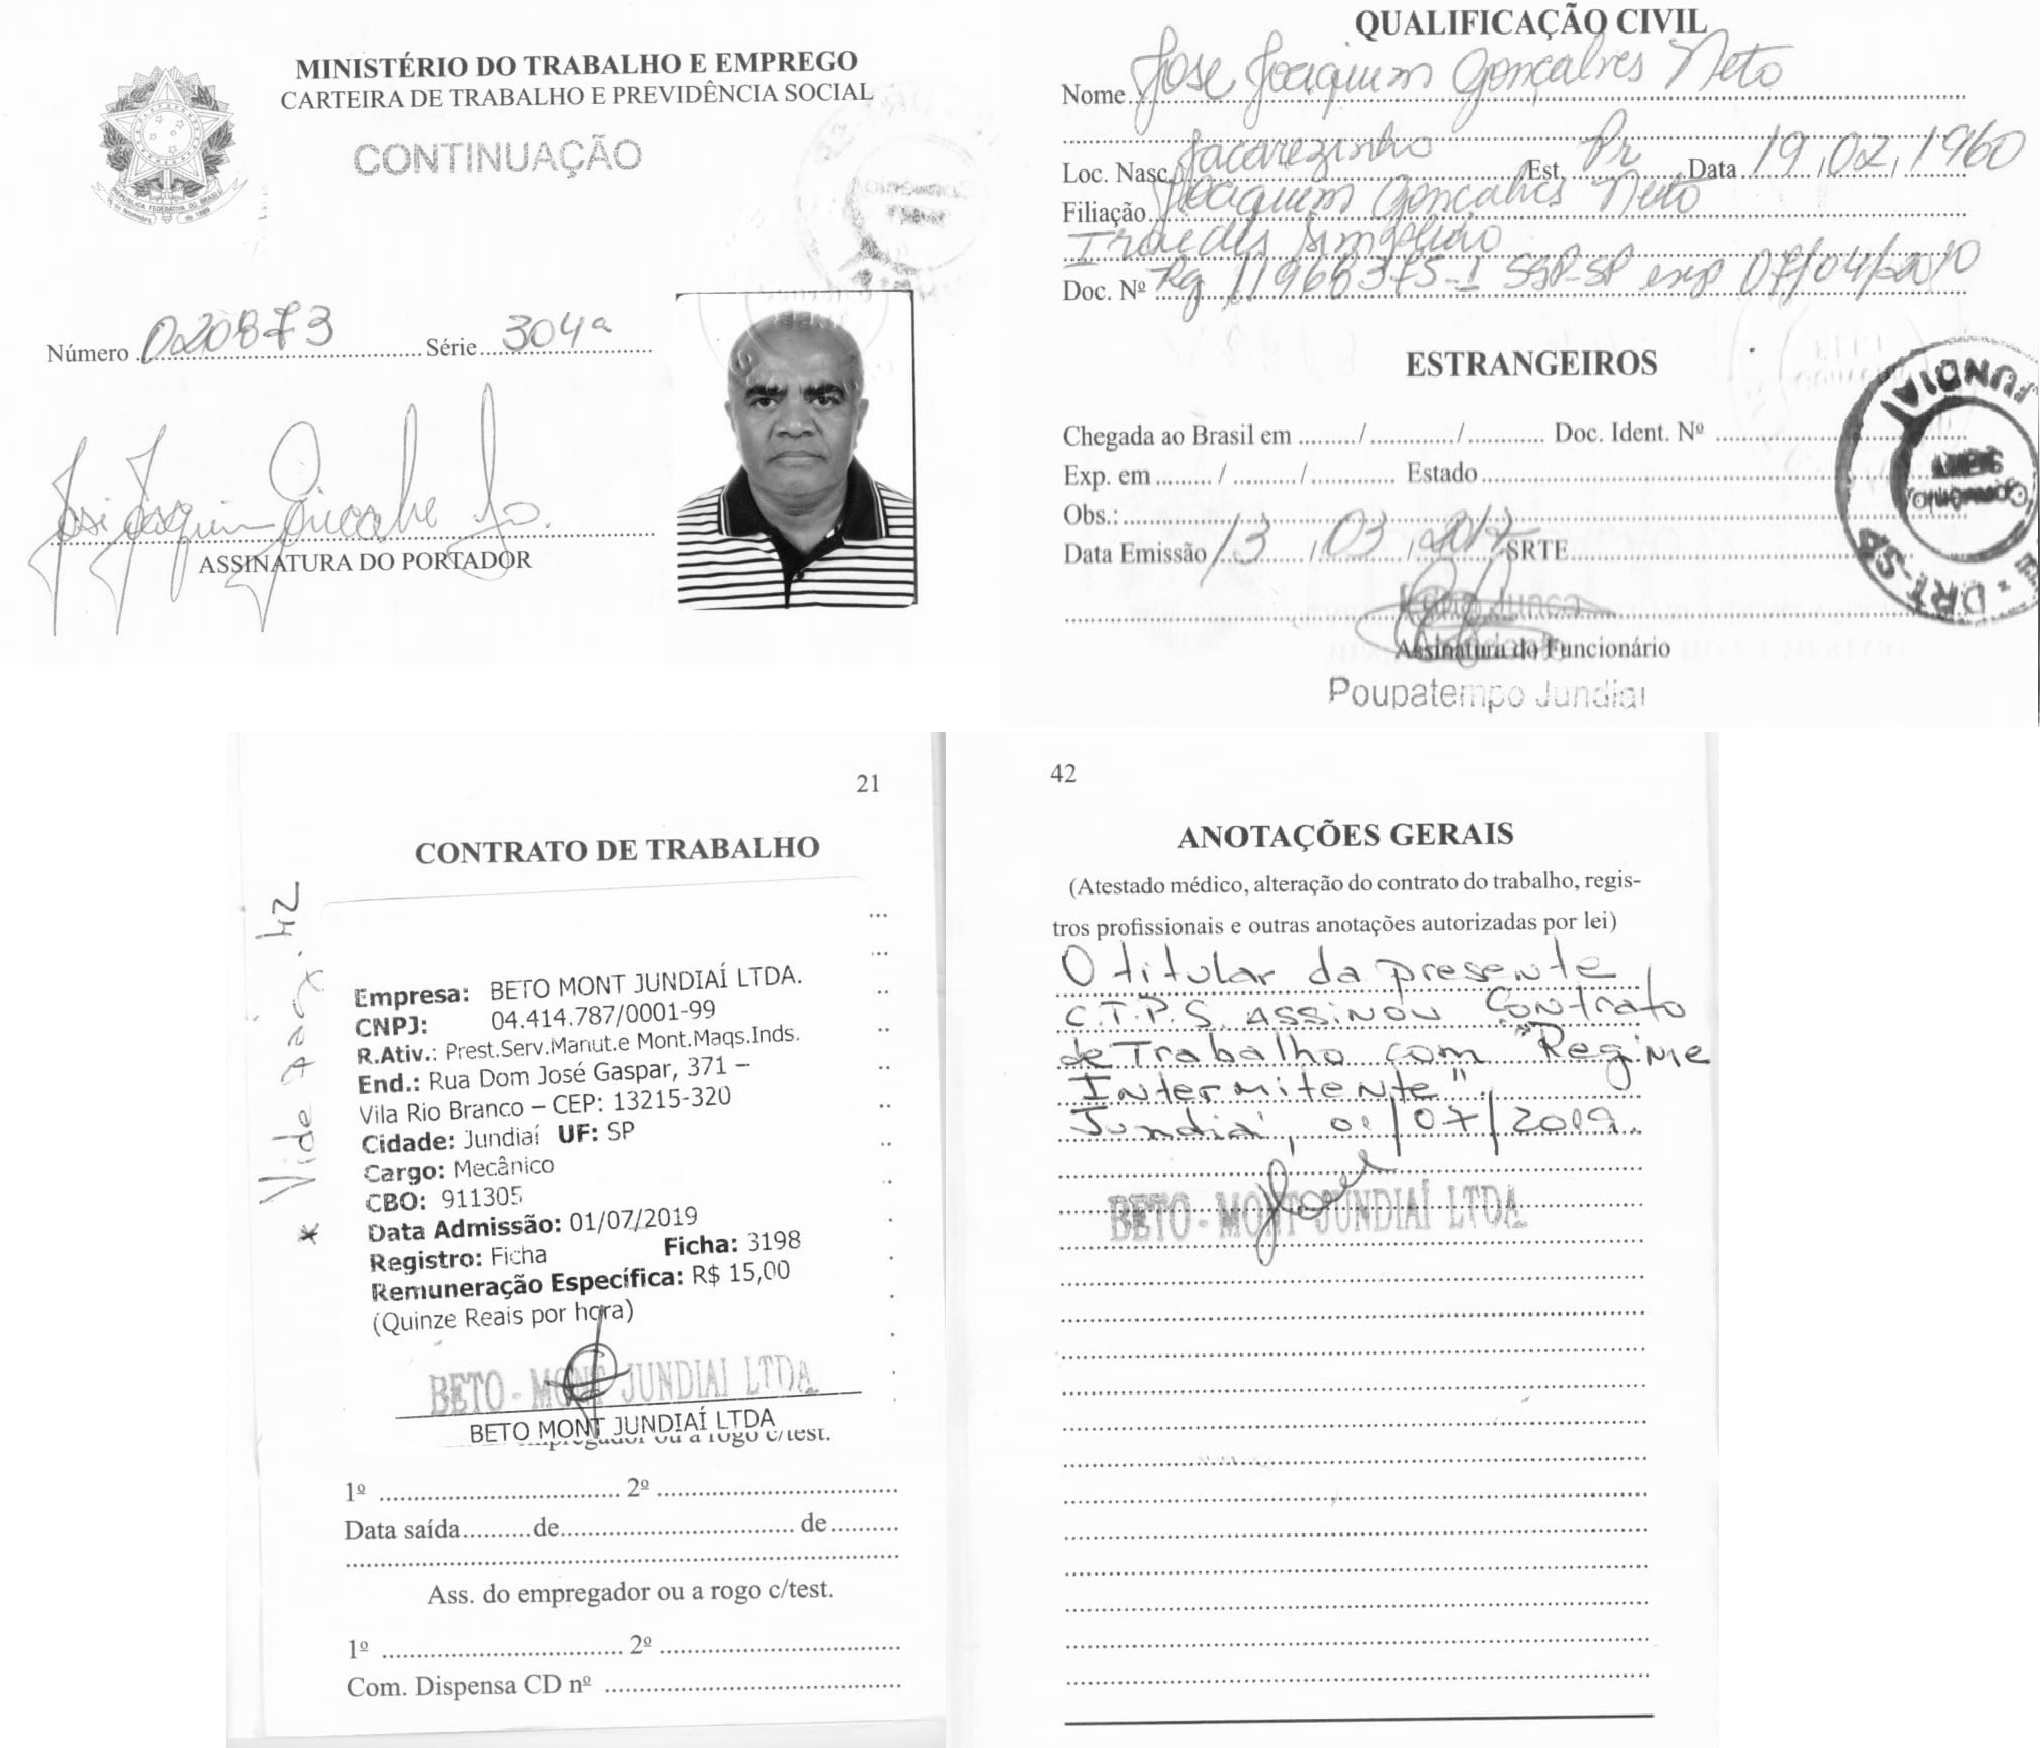 MINISTÉRIO DO TRABALHO E EMPREGO
CARTEIRA DE TRABALHO E PREVIDÊNCIA SOCIAL
CONTINUAÇÃO
Número 020873 Série 304ª
ASSINATURA DO PORTADOR
QUALIFICAÇÃO CIVIL
Nome Jose Joaquim Gonçalves Neto
Loc. Nasc. Jacarezinho Est. Pr Data 19,02,1960
Filiação Joaquim Gonçalves Neto
Doc. Nº Rg 11966375-1 SSP-SP exp 07/04/2010
ESTRANGEIROS
Chegada ao Brasil em ......../............/............ Doc. Ident. Nº
Exp. em ........./............/............. Estado
Obs.:
Data Emissão 13,03,2017 SRTE
Assinatura do Funcionário
Poupatempo Jundiaí
JUNDIAÍ
DRT-SP
21
CONTRATO DE TRABALHO
* Vide pág. 42
Empresa: BETO MONT JUNDIAÍ LTDA.
CNPJ: 04.414.787/0001-99
R.Ativ.: Prest.Serv.Manut.e Mont.Maqs.Inds.
End.: Rua Dom José Gaspar, 371 –
Vila Rio Branco – CEP: 13215-320
Cidade: Jundiaí UF: SP
Cargo: Mecânico
CBO: 911305
Data Admissão: 01/07/2019
Registro: Ficha Ficha: 3198
Remuneração Específica: R$ 15,00
(Quinze Reais por hora)
BETO - MONT JUNDIAI LTDA
BETO MONT JUNDIAÍ LTDA
empregador ou a rogo c/test.
1º .................................. 2º ..................................
Data saída..........de.................................. de..........
Ass. do empregador ou a rogo c/test.
1º .................................. 2º ..................................
Com. Dispensa CD nº
42
ANOTAÇÕES GERAIS
(Atestado médico, alteração do contrato do trabalho, regis-
tros profissionais e outras anotações autorizadas por lei)
O titular da presente
C.T.P.S. assinou Contrato
de Trabalho com "Regime
Intermitente".
Jundiaí, 01/07/2019.
BETO - MONT JUNDIAÍ LTDA